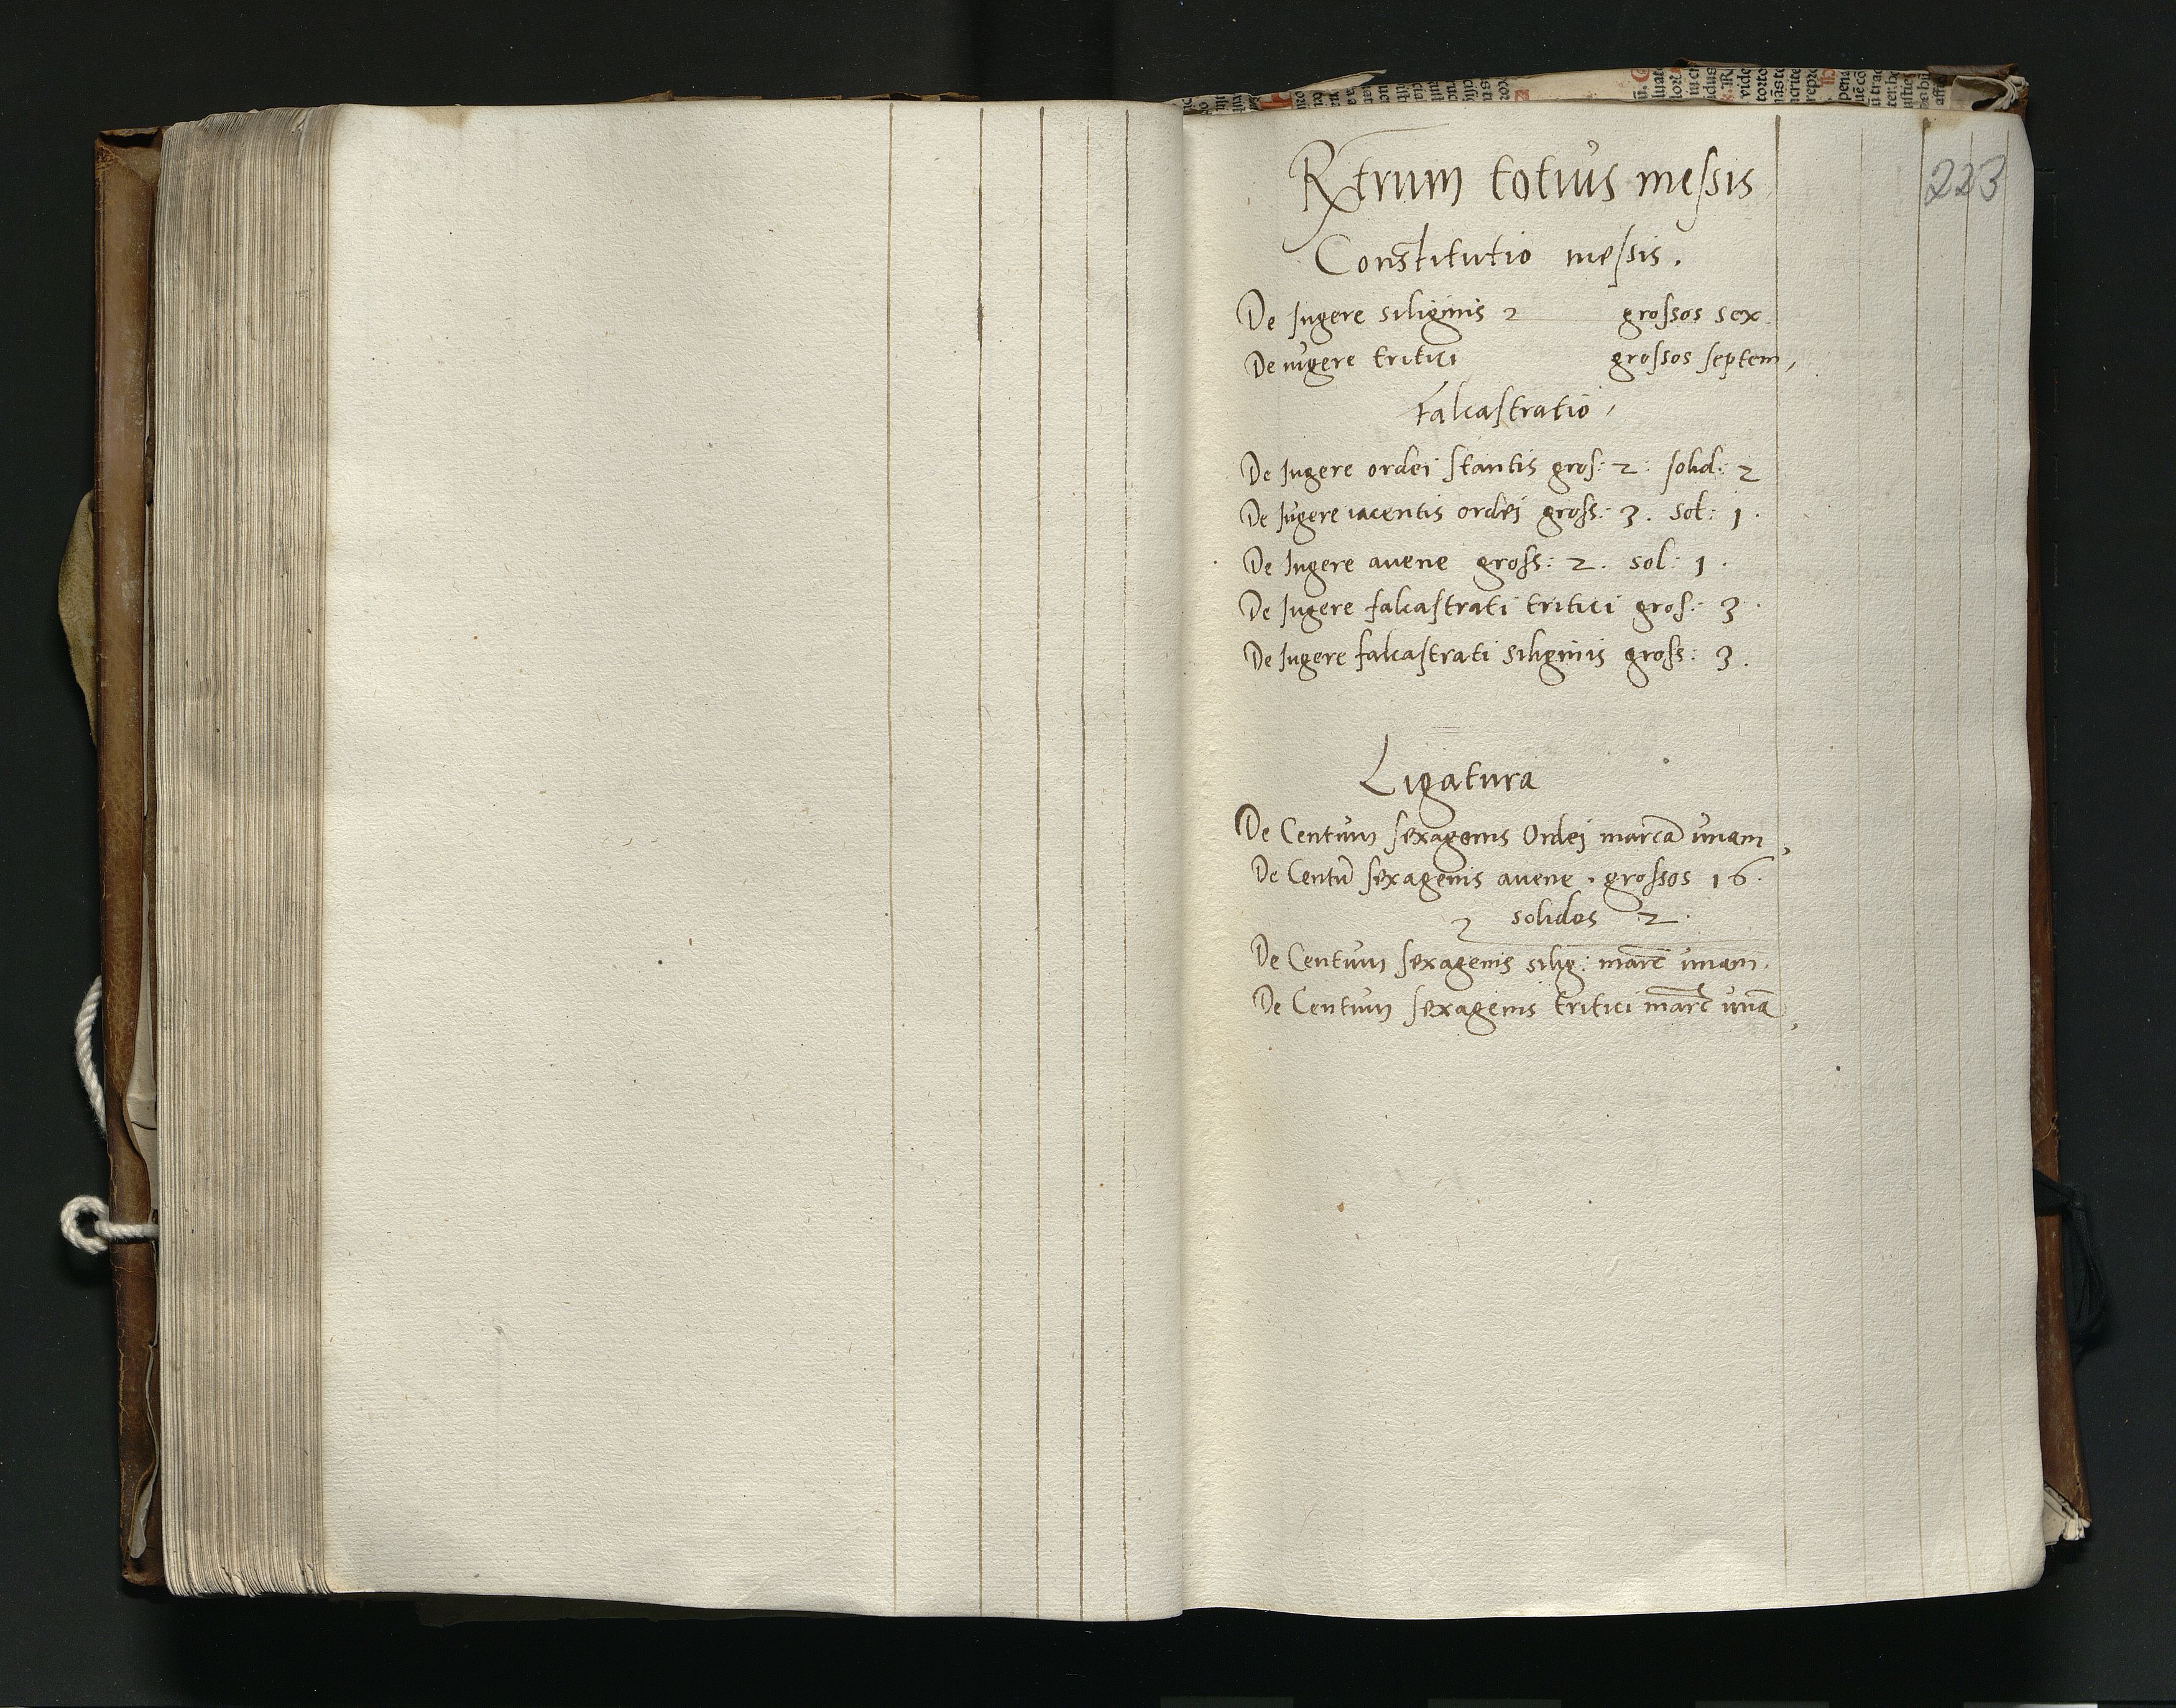 223
Rxtrum totius messis
Constitutio messis.
De Jugere siliginis 2 grossos sex.
De iugere tritici grossos septem,
Falcastratio,
De Jugere ordei stantis gros: 2: solid: 2
De Jugere iacentis ordej gross: 3. sol: 1.
De Jugere auene gross: 2. sol: 1.
De Jugere falcastrati tritici gros: 3.
De Jugere falcastrati siliginis gross: 3.
Ligatura
De Centum sexagenis Ordej marcã unam,
De Centũ sexagenis auene. grossos 16.
2 solidos 2.
De Centum sexagenis silig: marc̃ unam.
De Centum sexagenis tritici marc̃ unã,